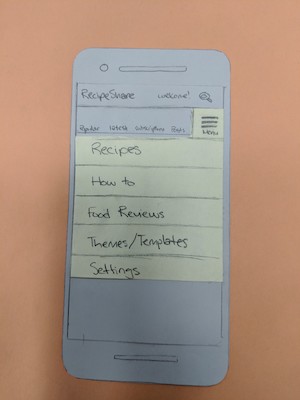 RecipeShare welcome!
Popular Latest Subscriptions
Menu
Recipes
How to
Food Reviews
Themes/Templates
Settings